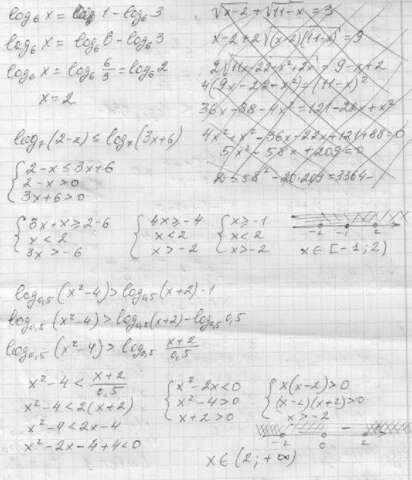 log₆ x = log₆ 1 - log₆ 3
log₆ x = log₆ 6 - log₆ 3
log₆ x = log₆ 6/3 = log₆ 2
x = 2
√x-2 + √11-x = 3
x-2+2√(x-2)(11-x)
= 9-x+2
36x-88-4x² = 121-22x+x²
4x²+x²-36x-22x+121+88=0
5x²-58x+209=0
log₇(2-x) ≤ log₇(3x+6)
{ 2-x ≤ 3x+6
2-x > 0
3x+6 > 0
{ 3x+x ≥ 2-6
x < 2
3x > -6
{ 4x ≥ -4
x < 2
x > -2
{ x ≥ -1
x < 2
x > -2
-2 -1 2
x ∈ [-1; 2)
log₀,₅(x²-4) > log₀,₅(x+2) - 1
log₀,₅(x²-4) > log₀,₅(x+2) - log₀,₅ 0,5
log₀,₅(x²-4) > log₀,₅ x+2/0,5
x²-4 < x+2/0,5
x²-4 < 2(x+2)
x²-4 < 2x-4
x²-2x-4+4<0
{ x²-2x<0
x²-4>0
x+2>0
{ x(x-2)>0
(x-2)(x+2)>0
x>-2
-2 0 2
x ∈ (2; +∞)